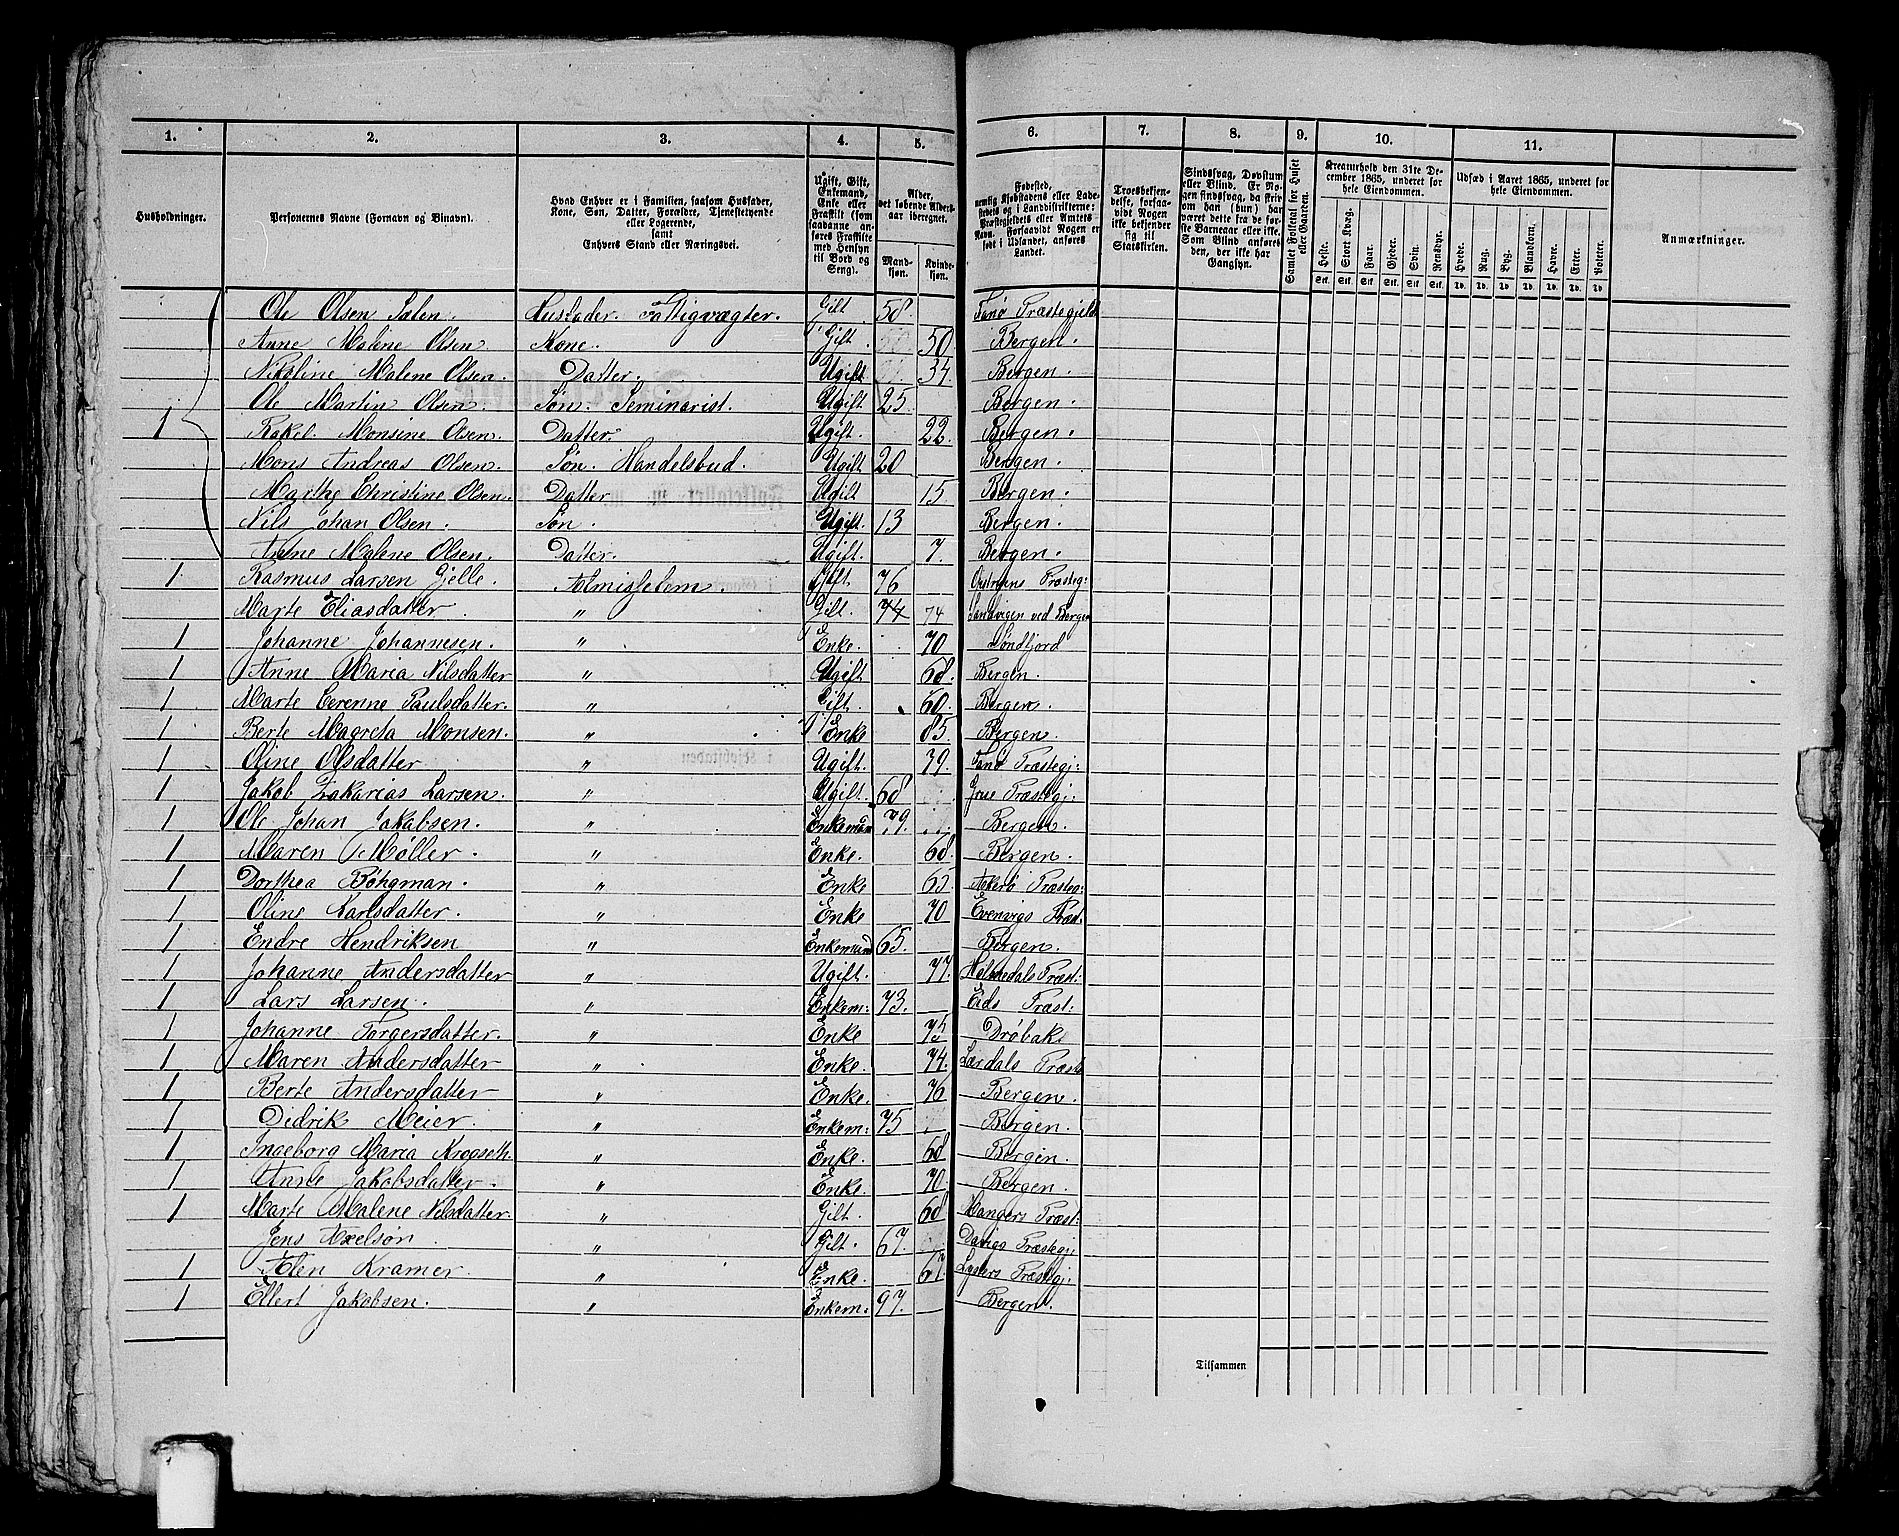 1. 2. 3. 4. 5. 6. 7. 8. 9. 10. 11.
Husholdninger.
Personernes Navne (Fornavn og Binavn).
Hvad Enhver er i Familien, saasom Husfader, Kone, Søn, Datter, Forældre, Tjenestetyende eller Logerende, samt Enhvers Stand eller Næringsvei.
Ugift, Gift, Enkemand, Enke eller Fraskilt (som saadanne anføres Fraskilte med Hensyn til Bord og Seng).
Alder, det løbende Alders-aar iberegnet.
Mand-kjøn. Kvinde-kjøn.
Fødested, nemlig Kjøbstadens eller Ladestedets og i Landdistrikterne: Præstegjeldets eller Amtets Navn. Forsaavidt Nogen er født i Udlandet, anføres Landet.
Troesbekjendelse, forsaavidt Nogen ikke bekjender sig til Statskirken.
Sindssvag, Døvstum eller Blind. Er Nogen sindssvag, da skrives om han (hun) har været dette fra de første Barneaar eller ikke. Som Blind anføres den, der ikke har Gangsyn.
Samlet Folketal for Huset eller Gaarden.
Kreaturhold den 31te December 1865, underet for hele Eiendommen.
Heste. Stort Kvæg. Faar. Gjeder. Svin. Rensdyr.
Udsæd i Aaret 1865, underet for hele Eiendommen.
Hvede. Rug. Byg. Blandkorn. Havre. Erter. Poteter.
Anmærkninger.
Stk. Stk. Stk. Stk. Stk. Stk. Td. Td. Td. Td. Td. Td. Td.
Ole Olsen Salen. Husfader. Fattigvægter. Gift 58. Fanø Præstegjeld
Anne Malene Olsen. Kone. Gift. 50. Bergen.
Nikoline Malene Olsen. Datter. Ugift 34. Bergen.
Ole Martin Olsen. Søn. Seminarist. Ugift. 25. Bergen.
1 Rakel Monsine Olsen. Datter. Ugift. 22. Bergen.
Mons Andreas Olsen. Søn. Handelsbud. Ugift 20 Bergen.
Marthe Christine Olsen. Datter Ugift 15 Bergen.
Nils Johan Olsen. Søn. Ugift. 13 Bergen.
Anne Malene Olsen. Datter. Ugift. 7. Bergen.
1 Rasmus Larsen Gjelle. Almisselem. Gift. 76 Præsteg:
Marte Eliasdatter " Gift. 74 74 Sandvigen ved Bergen
1 Johanne Johannesen. " Enke. 70 Søndfjord
1 Anne Maria Nilsdatter " Ugift 68. Bergen.
1 Marte Cerenne Paulsdatter. " Gift. 60. Bergen.
1 Berte Magreta Monsen. " Enke 85. Bergen.
1 Oline Olsdatter " Ugift. 79. Fanø Præstegj:
1 Jakob Zakarias Larsen. " Ugift. 68 Grue Præstegj.
1 Ole Johan Jakobsen. " Enkemand 79. Bergen.
1 Maren Møller. " Enke. 68. Bergen.
1 Dorthea Bøhgman. " Enke 65. Præsteg:
1 Oline Karlsdatter. " Enke 70 Evenvigs Præst.
1 Endre Hendriksen " Enkemand 65. Bergen.
1 Johanne Andersdatter " Ugift. 77. Holmedals Præst:
1 Lars Larsen. " Enkem: 73. Eids Præst:
1 Johanne Torgersdatter. " Enke 75 Drøbak
1 Maren Andersdatter " Enke. 74. Lærdals Præst
1 Berte Andersdatter " Enke. 76 Bergen.
1 Didrik Meier. " Enkem: 75 Bergen.
1 Ingeborg Maria Krogseth. " Enke. 68 Bergen.
1 Anne Jakobsdatter. " Enke. 70. Bergen.
1 Marte Malene Nilsdatter. " Gift. 68 Mangers Præst:
Jens Axelsøn. " Gift. 67. Davigs Præstegj.
1 Alen Kramer. " Enke. 67. Lysters Præstegj.
1 Ellert Jakobsen. " Enkem: 97. Bergen.
Tilsammen